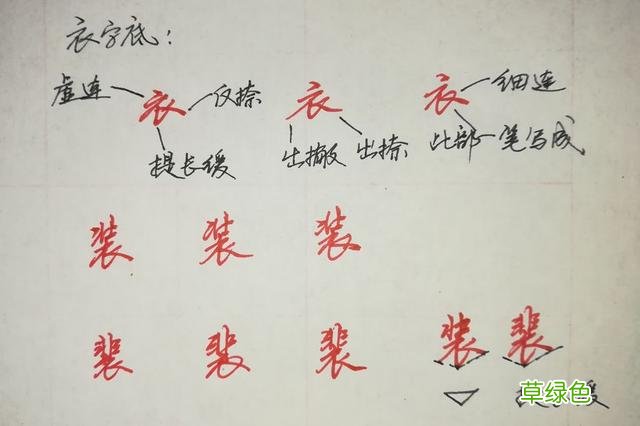 衣字底：
虚连 衣 反捺 衣 衣 细连
提长缓 出撇 出捺 此部一笔写成
装 装 装
裴 裴 裴 装 裴
草绿色 缓